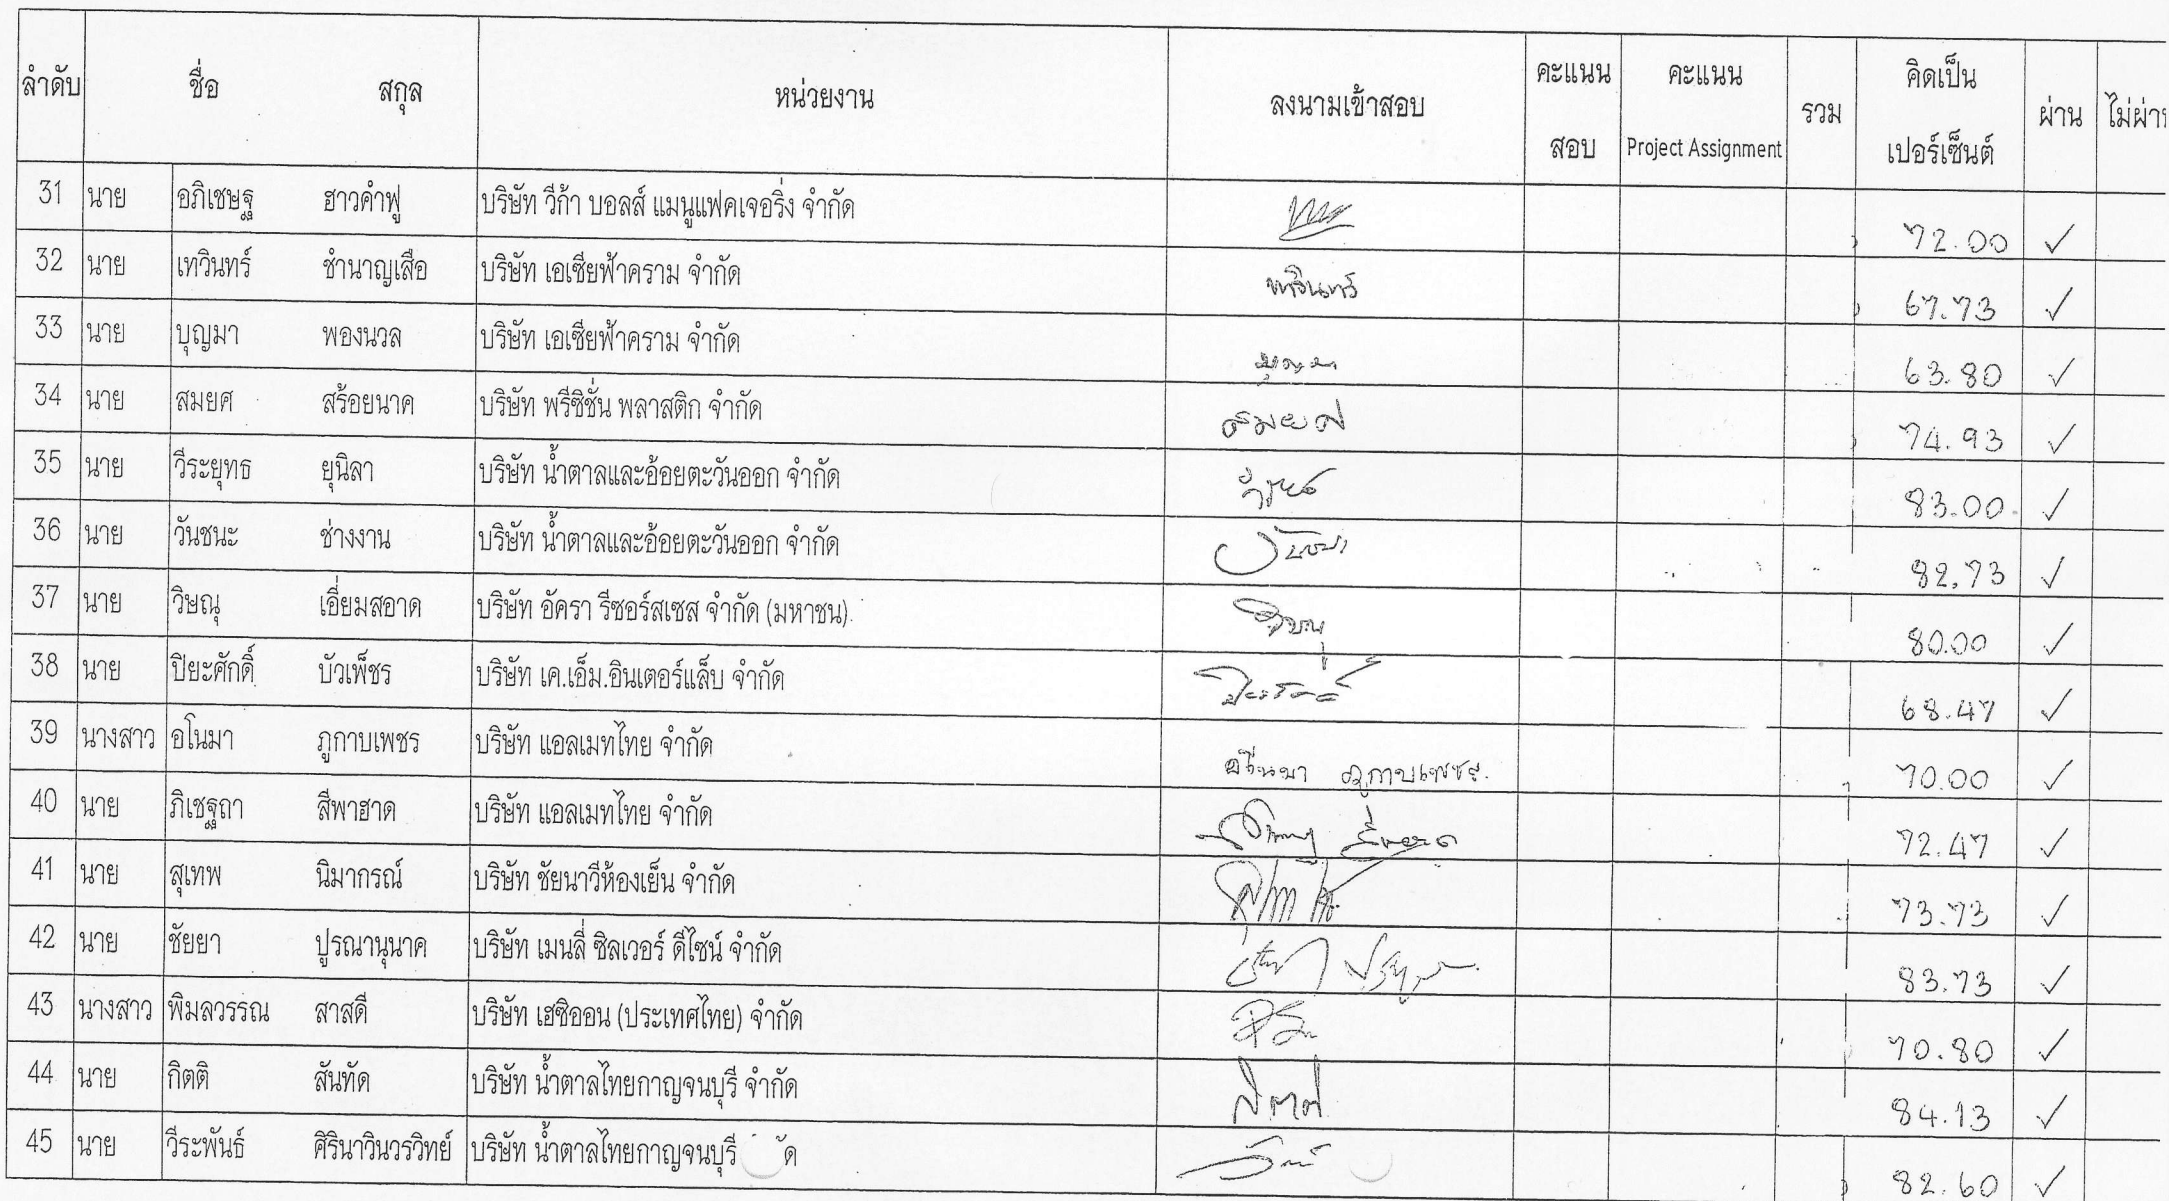 ลำดับ ชื่อ สกุล หน่วยงาน ลงนามเข้าสอบ คะแนน สอบ คะแนน Project Assignment รวม คิดเป็น เปอร์เซ็นต์ ผ่าน ไม่ผ่าน
31 นาย อภิเชษฐ ฮาวคำฟู บริษัท วีก้า บอลส์ แมนูแฟคเจอริ่ง จำกัด 72.00 ✓
32 นาย เทวินทร์ ชำนาญเสือ บริษัท เอเซียฟ้าคราม จำกัด เทวินทร์ 67.73 ✓
33 นาย บุญมา พองนวล บริษัท เอเซียฟ้าคราม จำกัด บุญมา 63.80 ✓
34 นาย สมยศ สร้อยนาค บริษัท พรีซิชั่น พลาสติก จำกัด สมยศ 74.93 ✓
35 นาย วีระยุทธ ยุนิลา บริษัท น้ำตาลและอ้อยตะวันออก จำกัด 83.00 ✓
36 นาย วันชนะ ช่างงาน บริษัท น้ำตาลและอ้อยตะวันออก จำกัด วันชนะ 82.73 ✓
37 นาย วิษณุ เอี่ยมสอาด บริษัท อัครา รีซอร์สเซส จำกัด (มหาชน) วิษณุ 80.00 ✓
38 นาย ปิยะศักดิ์ บัวเพ็ชร บริษัท เค.เอ็ม.อินเตอร์แล็บ จำกัด 68.47 ✓
39 นางสาว อโนมา ภูกาบเพชร บริษัท แอลเมทไทย จำกัด อโนมา ภูกาบเพชร. 70.00 ✓
40 นาย ภิเชฐถา สีพาฮาด บริษัท แอลเมทไทย จำกัด 72.47 ✓
41 นาย สุเทพ นิมากรณ์ บริษัท ชัยนาวีห้องเย็น จำกัด 73.73 ✓
42 นาย ชัยยา ปูรณานุนาค บริษัท เมนลี่ ซิลเวอร์ ดีไซน์ จำกัด 83.73 ✓
43 นางสาว พิมลวรรณ สาสดี บริษัท เฮซิออน (ประเทศไทย) จำกัด 70.80 ✓
44 นาย กิตติ สันทัด บริษัท น้ำตาลไทยกาญจนบุรี จำกัด กิตติ 84.13 ✓
45 นาย วีระพันธ์ ศิรินาวินวรวิทย์ บริษัท น้ำตาลไทยกาญจนบุรี 82.60 ✓